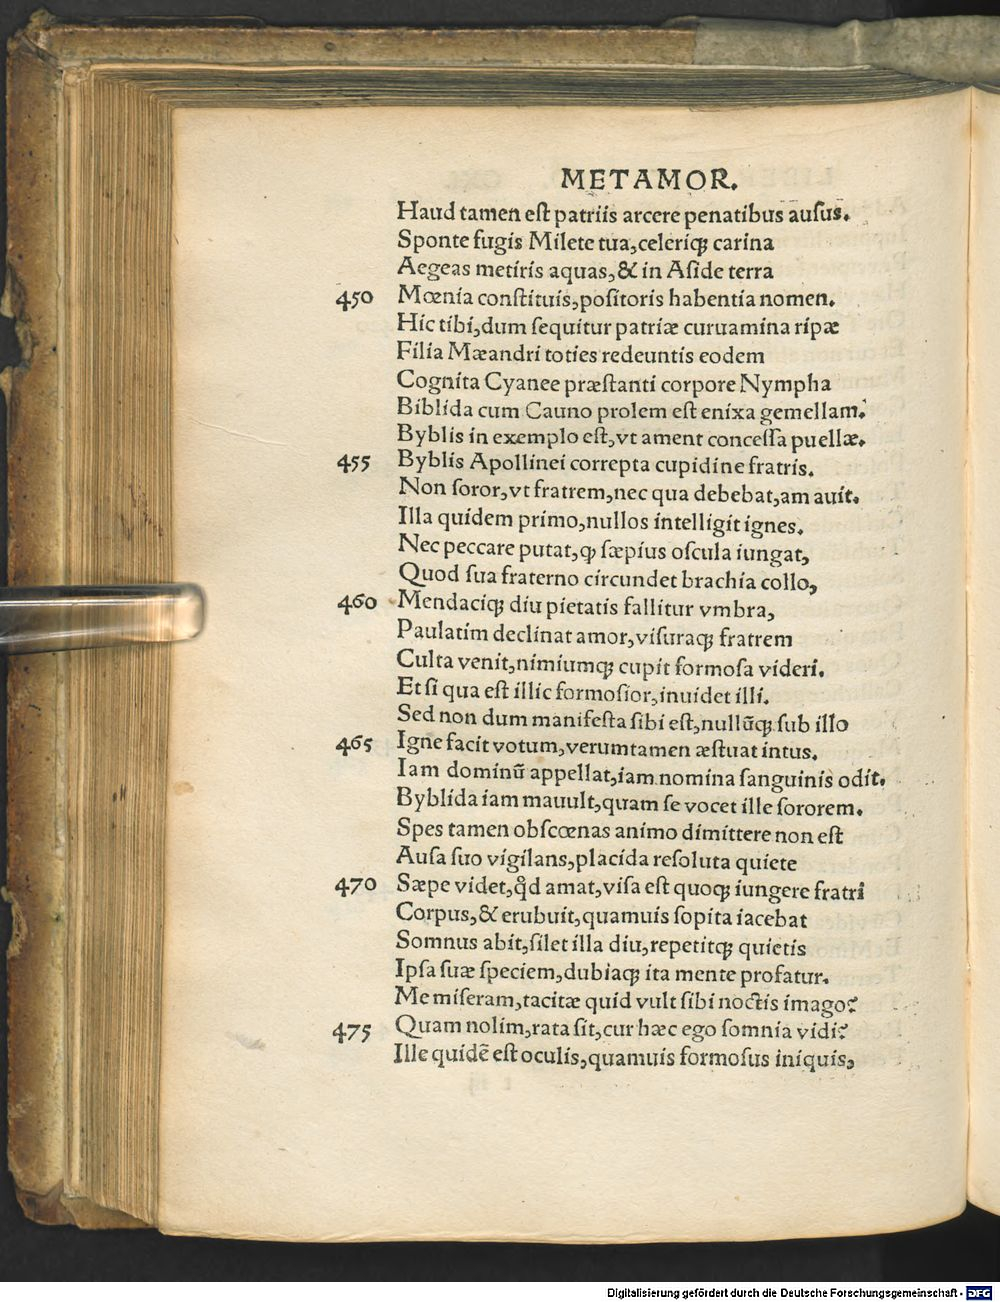 METAMOR.
Haud tamen eſt patriis arcere penatibus auſus.
Sponte fugis Milete tua,celeriqꝫ carina
Aegeas metiris aquas,& in Aſide terra
450 Mœnia conſtituis,poſitoris habentia nomen.
Hic tibi,dum ſequitur patriæ curuamina ripæ
Filia Mæandri toties redeuntis eodem
Cognita Cyanee præſtanti corpore Nympha
Biblida cum Cauno prolem eſt enixa gemellam.
Byblis in exemplo eſt,vt ament conceſſa puellæ.
455 Byblis Apollinei correpta cupidine fratris.
Non ſoror,vt fratrem,nec qua debebat,amauit.
Illa quidem primo,nullos intelligit ignes.
Nec peccare putat,ꝙ ſæpius oſcula iungat,
Quod ſua fraterno circundet brachia collo,
460 Mendaciqꝫ diu pietatis fallitur vmbra,
Paulatim declinat amor,viſuraqꝫ fratrem
Culta venit,nimiumqꝫ cupit formoſa videri.
Et ſi qua eſt illic formoſior,inuidet illi.
Sed non dum manifeſta ſibi eſt,nullūqꝫ ſub illo
465 Igne facit votum,verumtamen æſtuat intus.
Iam dominū appellat,iam nomina ſanguinis odit.
Byblida iam mauult,quam ſe vocet ille ſororem.
Spes tamen obſcœnas animo dimittere non eſt
Auſa ſuo vigilans,placida reſoluta quiete
470 Sæpe videt,qd̛ amat,viſa eſt quoqꝫ iungere fratri
Corpus,& erubuit,quamuis ſopita iacebat
Somnus abit,ſilet illa diu,repetitqꝫ quietis
Ipſa ſuæ ſpeciem,dubiaqꝫ ita mente profatur.
Me miſeram,tacitæ quid vult ſibi noctis imago?
475 Quam nolim,rata ſit,cur hæc ego ſomnia vidi?
Ille quidē eſt oculis,quamuis formoſus iniquis,
Digitalisierung gefördert durch die Deutsche Forschungsgemeinschaft - DFG